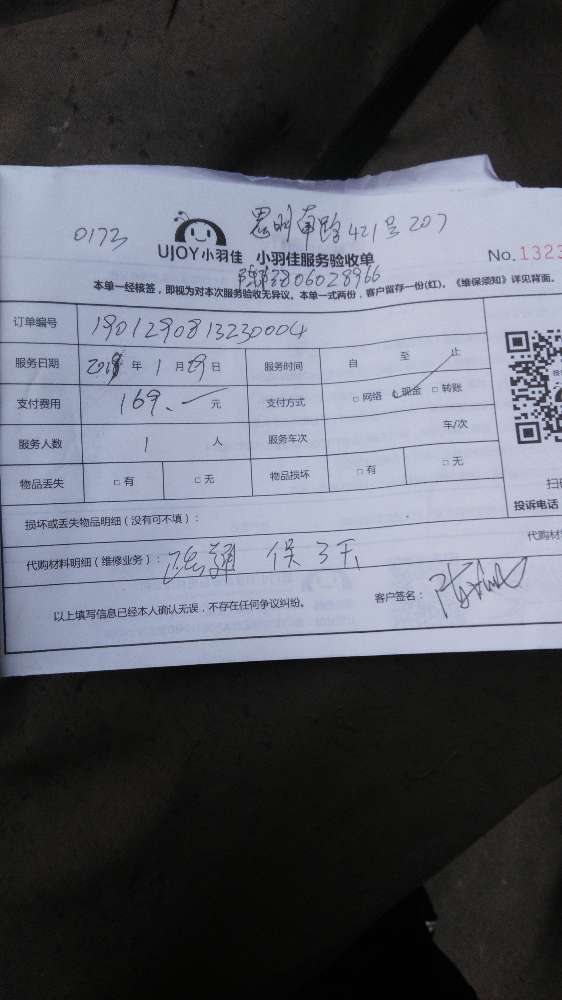 0173
思明南路421号207
UJOY小羽佳 小羽佳服务验收单
No.1323
陈 2206028966
本单一经核签，即视为对本次服务验收无异议。本单一式两份，客户留存一份(红)。《维保须知》详见背面。
订单编号 1901290813230004
服务日期 2019 年 1 月 29 日 服务时间 自 至 止
支付费用 169. 元 支付方式 □ 网络 □ 现金 □ 转账
服务人数 1 人 服务车次 车/次
物品丢失 □ 有 □ 无 物品损坏 □ 有 □ 无
投诉电话
损坏或丢失物品明细（没有可不填）：
代购材料明细（维修业务）： 疏通 保3天
以上填写信息已经本人确认无误，不存在任何争议纠纷。 客户签名：